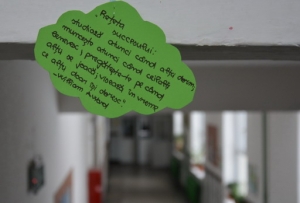 „Rețeta succesului:
studiază atunci când alții dorm;
muncește atunci când ceilalți
lenevesc; pregătește-te pe când
alții se joacă; visează în vreme
ce alții doar își doresc"
William Ward